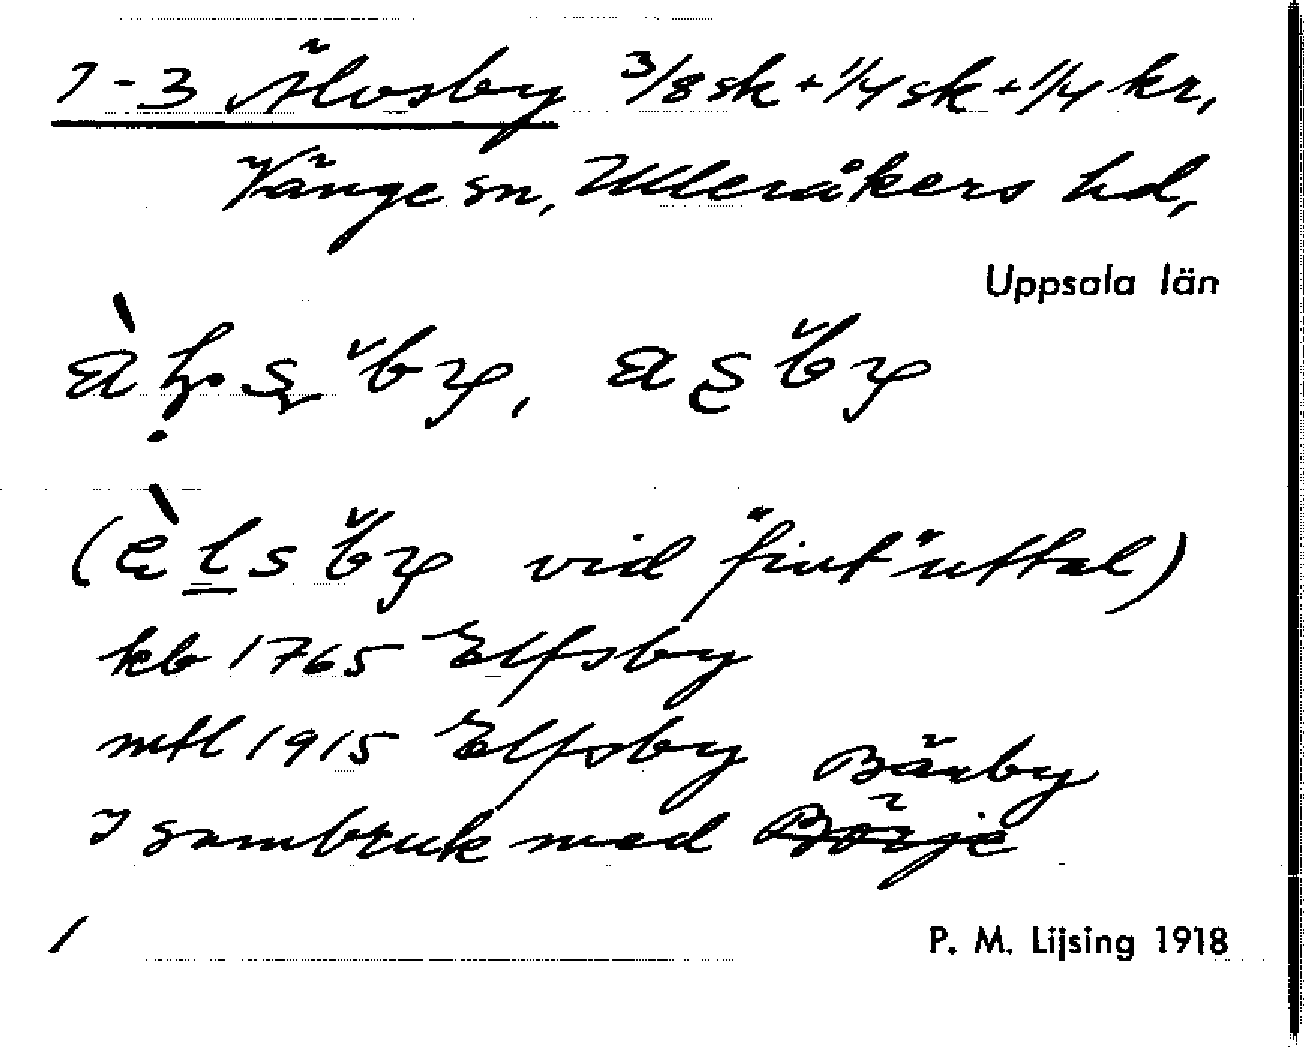 1-3 Älvsby 3/8 sk + 1/4 sk + 1/4 kr,
Vänge sn, Ulleråkers hd,
Uppsala län
vid "fint" uttal)
kb 1765 Elfsby
mtl 1915 Elfsby Bärby
I sambruk med Börje
/
P. M. Lijsing 1918